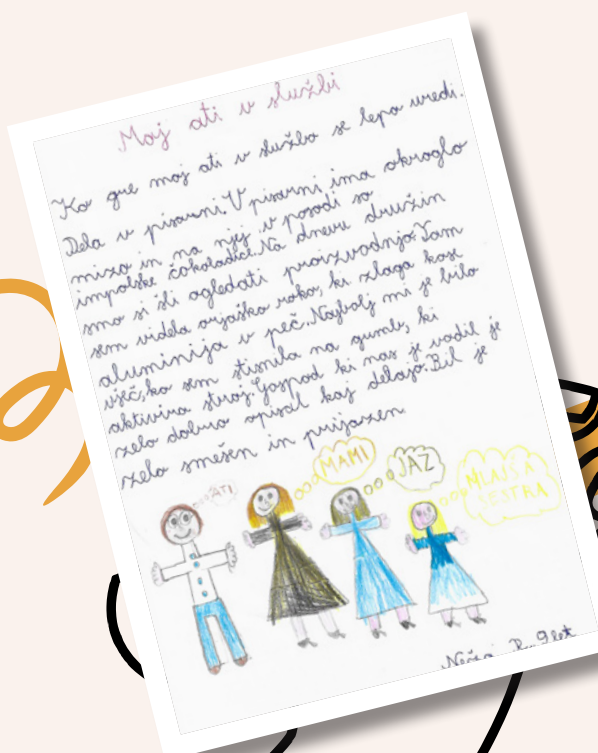 Moj ati v službi
Ko gre moj ati v službo se lepo uredi.
Dela v pisarni. V pisarni ima okroglo
mizo in na njej v posodi so
impolske čokoladice. Na dnevu družin
smo si šli ogledati proizvodnjo. Tam
sem videla orjaško roko, ki zlaga kose
aluminija v peč. Najbolj mi je bilo
všeč, ko sem stisnila na gumb, ki
aktivira stroj. Gospod ki nas je vodil je
zelo dobro opisal kaj delajo. Bil je
zelo smešen in prijazen
ATI
MAMI
JAZ
MLAJŠA
SESTRA
Neža 9 let